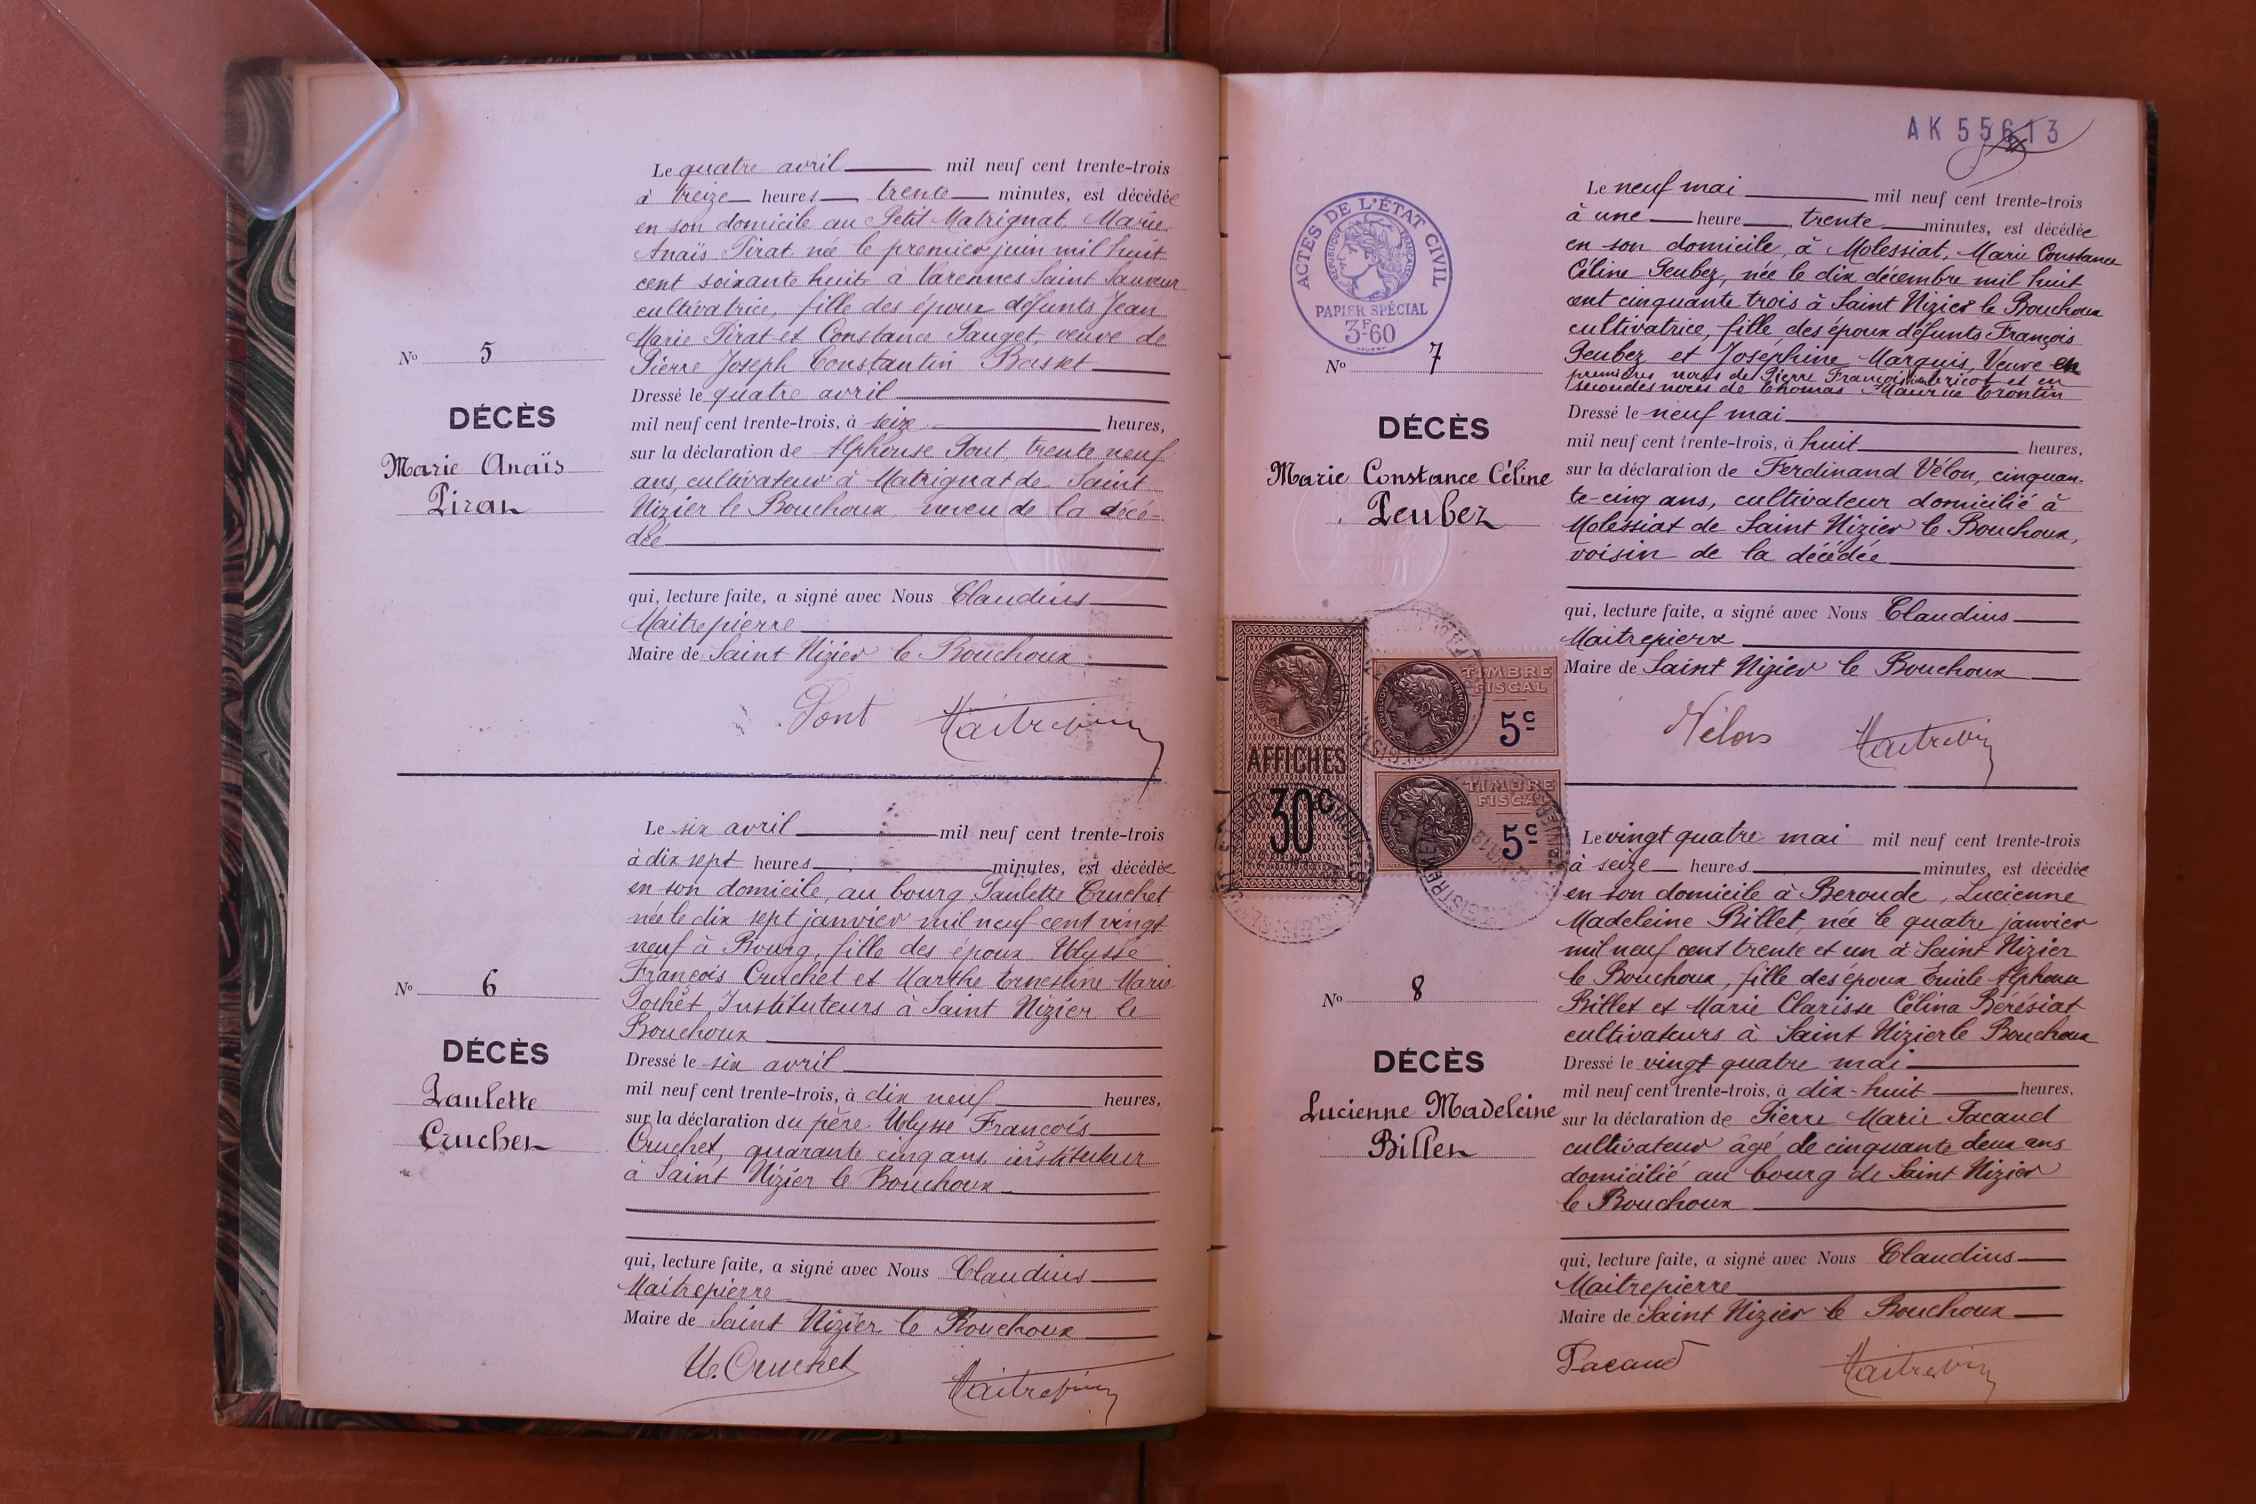 Le quatre avril mil neuf cent trente-trois
à treize heures trente minutes, est décédée
en son domicile au Petit Matrignat, Marie
Anaïs Pirat née le premier juin mil huit
cent soixante huit à Varennes Saint Sauveur
cultivatrice, fille des époux défunts Jean
Marie Pirat et Constance Pauget, veuve de
Pierre Joseph Constantin Basset
Dressé le quatre avril
mil neuf cent trente-trois, à seize heures,
sur la déclaration de Alphonse Pont, trente neuf
ans, cultivateur à Matrignat de Saint
Nizier le Bouchoux, neveu de la décé-
dée
qui, lecture faite, a signé avec Nous Claudius
Maitrepierre
Maire de Saint Nizier le Bouchoux
Pont Maitrepierre
N° 5
DÉCÈS
Marie Anaïs
Pirat
Le six avril mil neuf cent trente-trois
à dix sept heures minutes, est décédée
en son domicile, au bourg, Paulette Cruchet
née le dix sept janvier mil neuf cent vingt
neuf à Bourg, fille des époux Ulysse
François Cruchet et Marthe Ernestine Marie
Pochet, Instituteurs à Saint Nizier le
Bouchoux
Dressé le six avril
mil neuf cent trente-trois, à dix neuf heures,
sur la déclaration du père Ulysse François
Cruchet, quarante cinq ans, instituteur
à Saint Nizier le Bouchoux
qui, lecture faite, a signé avec Nous Claudius
Maitrepierre
Maire de Saint Nizier le Bouchoux
U. Cruchet Maitrepierre
N° 6
DÉCÈS
Paulette
Cruchet
AK 55613
ACTES DE L'ÉTAT CIVIL
RÉPUBLIQUE FRANÇAISE
PAPIER SPÉCIAL
3F60
Le neuf mai mil neuf cent trente-trois
à une heure trente minutes, est décédée
en son domicile, à Molessiat, Marie Constance
Céline Peubez, née le dix décembre mil huit
cent cinquante trois à Saint Nizier le Bouchoux
cultivatrice, fille des époux défunts François
Peubez et Joséphine Marguis, Veuve en
premières noces de Pierre François et en
secondes noces de Thomas Maurice Trontin
Dressé le neuf mai
mil neuf cent trente-trois, à huit heures,
sur la déclaration de Ferdinand Vélon, cinquan-
te-cinq ans, cultivateur domicilié à
Molessiat de Saint Nizier le Bouchoux,
voisin de la décédée
qui, lecture faite, a signé avec Nous Claudius
Maitrepierre
Maire de Saint Nizier le Bouchoux
Vélon Maitrepierre
N° 7
DÉCÈS
Marie Constance Céline
Peubez
AFFICHES
30c
TIMBRE
FISCAL
5c
TIMBRE
FISCAL
5c
Le vingt quatre mai mil neuf cent trente-trois
à seize heures minutes, est décédée
en son domicile à Beroude, Lucienne
Madeleine Billet, née le quatre janvier
mil neuf cent trente et un à Saint Nizier
le Bouchoux, fille des époux Emile Alphonse
Billet et Marie Clarisse Célina Bérésiat
cultivateurs à Saint Nizier le Bouchoux
Dressé le vingt quatre mai
mil neuf cent trente-trois, à dix-huit heures,
sur la déclaration de Pierre Marie Pacaud
cultivateur âgé de cinquante deux ans
domicilié au bourg de Saint Nizier
le Bouchoux
qui, lecture faite, a signé avec Nous Claudius
Maitrepierre
Maire de Saint Nizier le Bouchoux
Pacaud Maitrepierre
N° 8
DÉCÈS
Lucienne Madeleine
Billet